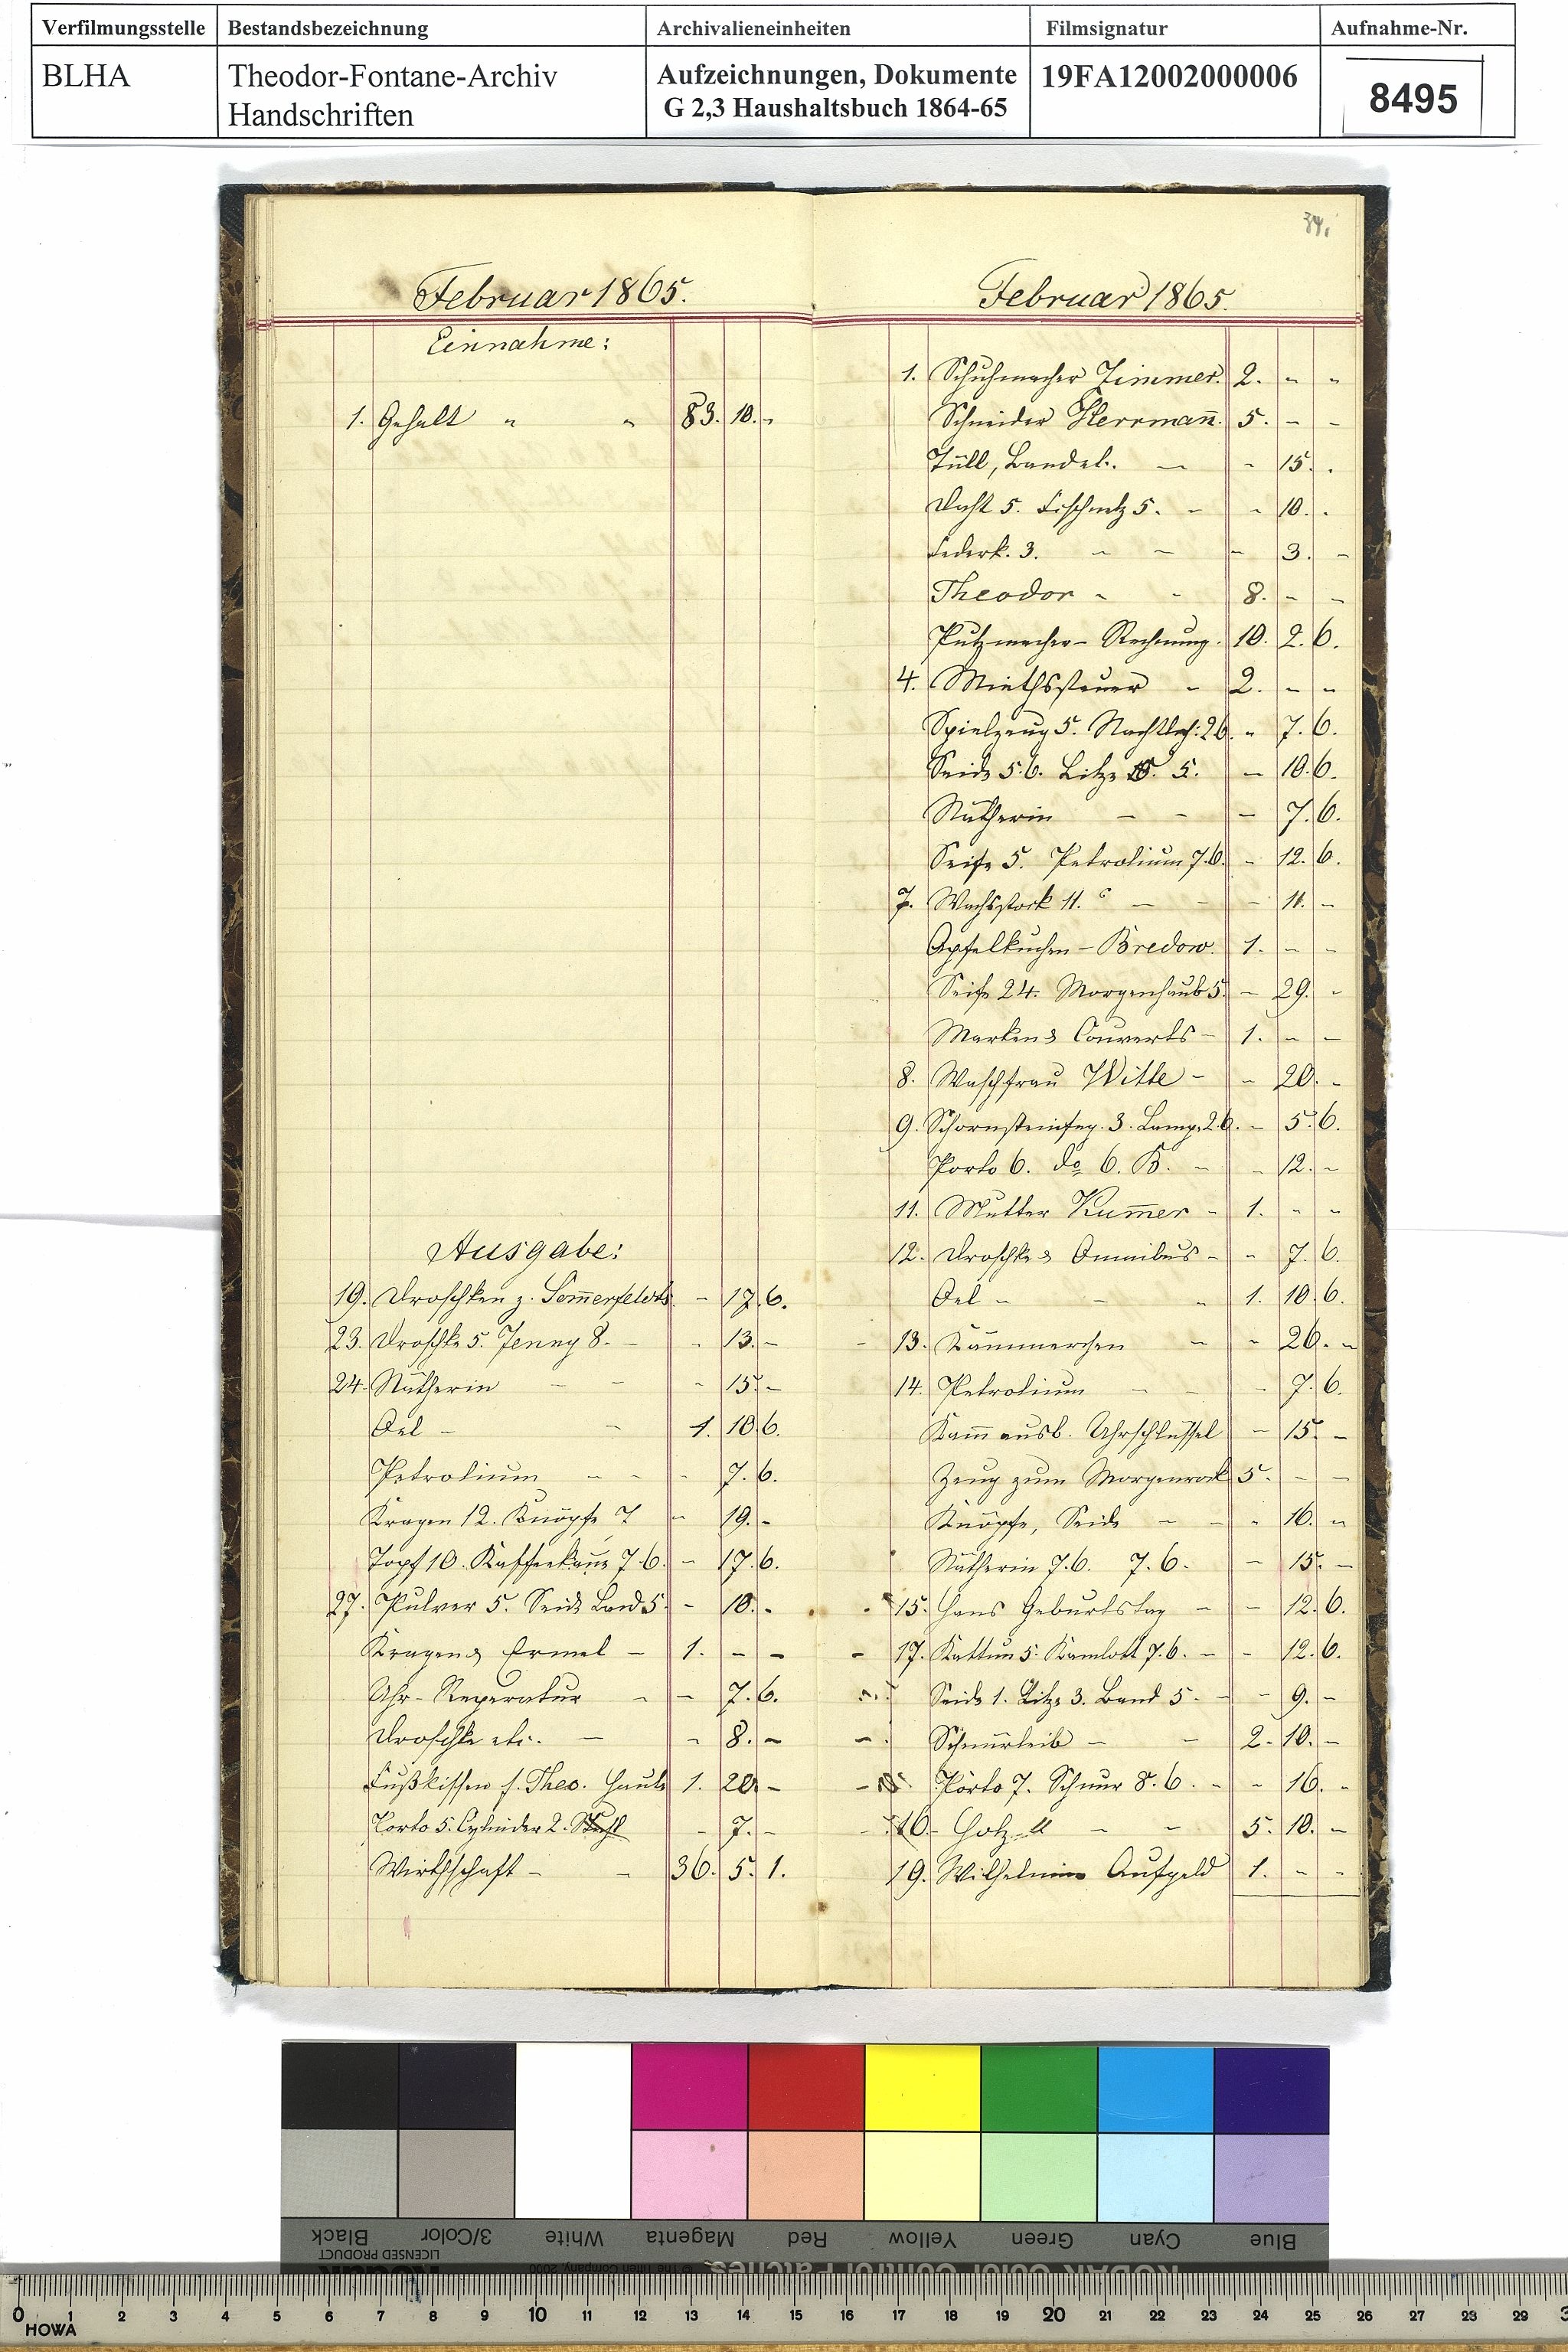 Verfilmungsstelle Bestandsbezeichnung Archivalieneinheiten Filmsignatur Aufnahme-Nr.
BLHA Theodor-Fontane-Archiv Handschriften Aufzeichnungen, Dokumente G 2,3 Haushaltsbuch 1864-65 19FA12002000006 8495
Februar 1865.
Einnahme:
1. Gehalt " " 83. 10. -
Ausgabe:
19. Droschken z. Som̅erfeldts - 17. 6.
23. Droschke 5. Jenny 8. - - 13. -
24. Nätherin - - - 15. -
Oel - - 1. 10. 6.
Petrolium - - - 7. 6.
Kragen 12. Knöpfe 7 - 19. -
Topf 10. Kaffeekan̅e 7.6. - 17. 6.
27. Pulver 5. Seide Band 5. - 10. -
Kragen & Ermel - 1. - -
Uhr-Reperatur - - 7. 6.
Droschke etc. - - 8. -
Fußkissen f. Theo. Haube 1. 20. -
Porto 5. Cylinder 2. - 7. -
Wirthschaft - - 36. 5. 1.
34.
Februar 1865.
1. Schuhmacher Zimmer. 2. - -
Schneider Herrman̅. 5. - -
Tüll, Bandel. - - 15. .
Docht 5. Fischnetz 5. - - 10. .
Federk. 3. - - - 3. -
Theodor - - 8. - -
Putzmacher-Rechnung. 10. 2. 6.
4. Miethssteuer - 2. - -
Spielzeug 5. Nachtlich: 26. - 7. 6.
Seide 5.6. Litze 5. - 10. 6.
Nätherin - - - 7. 6.
Seife 5. Petrolium 7.6. - 12. 6.
7. Wachsstock 11. - - - 11. -
Apfelkuchen-Bredow. 1. - -
Seife 24. Morgenhaub 5. - 29. -
Marken & Couverts - 1. - -
8. Waschfrau Witte - - 20. -
9. Schornsteinfeg. 3. Lamp. 2.6. - 5. 6.
Porto 6. do 6. B. - - 12. -
11. Mutter Kum̅er - 1. - -
12. Droschke & Omnibus - - 7. 6.
Oel - - - 1. 10. 6.
13. Kämmerchen - - 26. -
14. Petrolium - - - 7. 6.
Kam̅ ausb. Uhrschlüssel - 15. -
Zeug zum Morgenrock 5. - -
Knöpfe, Seide - - - 16. -
Nätherin 7.6. 7.6. - 15. -
15. Hans Geburtstag - - 12. 6.
17. Kattun 5. Kamlott 7.6. - - 12. 6.
Seide 1. Litze 3. Band 5. - - 9. -
Schnürleib - - 2. 10. -
Porto 7. Schnur 8.6. - - 16. -
16. Holz - - 5. 10. -
19. Wilhelmine Aufgeld 1. - -
Black 3/Color White Magenta Red Yellow Green Cyan Blue
LICENSED PRODUCT
Kodak © The Tiffen Company, 2000 KODAK Color Control Patches
0 1 2 3 4 5 6 7 8 9 10 11 12 13 14 15 16 17 18 19 20 21 22 23 24 25 26 27 28 29 3
HOWA